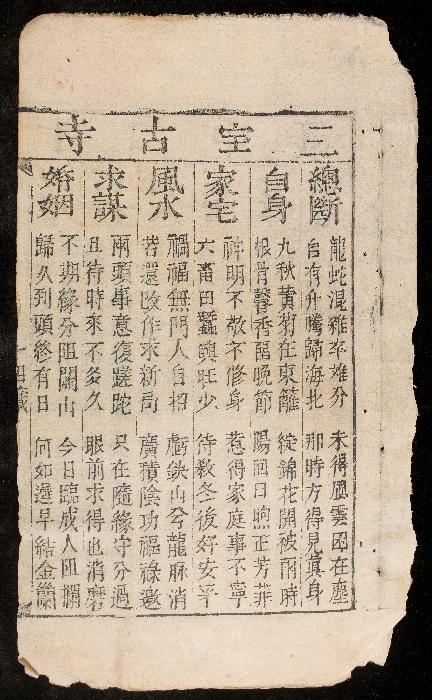 三宝古寺
總斷
龍蛇混雜卒难分 未得風雲困在塵
台有升騰歸海北 那時方得見真身
自身
九秋黄菊在東籬 綻錦花開被雨時
根骨馨香留晚節 陽回日煦正芳菲
家宅
神明不敬不修身 惹得家庭事不寧
六畜田蠶興旺少 待教冬後好安平
風水
禍福無門人自招 虧缺山兮龍脉消
若還改作求新局 廣積陰功福祿邀
求謀
兩頭事意復蹉跎 只在隨緣守分過
且待時來不多久 眼前求得也消磨
婚姻
不期緣分阻關山 今日臨成人阻攔
歸久到頭終有日 何如選早結金蘭
四籤